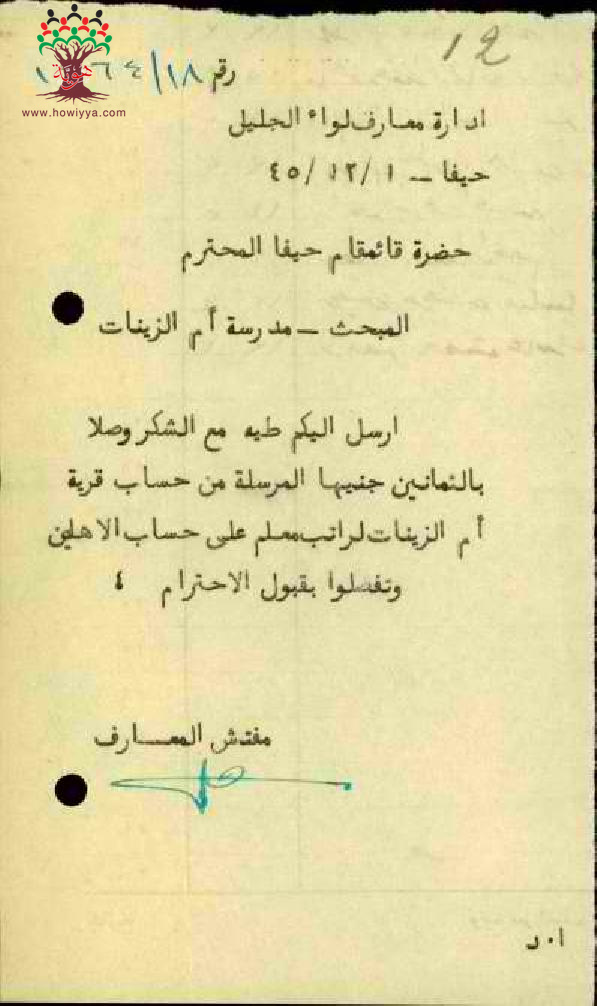 12
هوية
www.howiyya.com
رقم ٦٤/١٨
ادارة معارف لواء الجليل
حيفا – ١ /١٢ /٤٥
حضرة قائمقام حيفا المحترم
المبحث – مدرسة أم الزينات
ارسل اليكم طيه مع الشكر وصلا
بالثمانين جنيها المرسلة من حساب قرية
أم الزينات لراتب معلم على حساب الاهلين
وتفضلوا بقبول الاحترام ٤
مفتش المعـــارف
ا٠ر